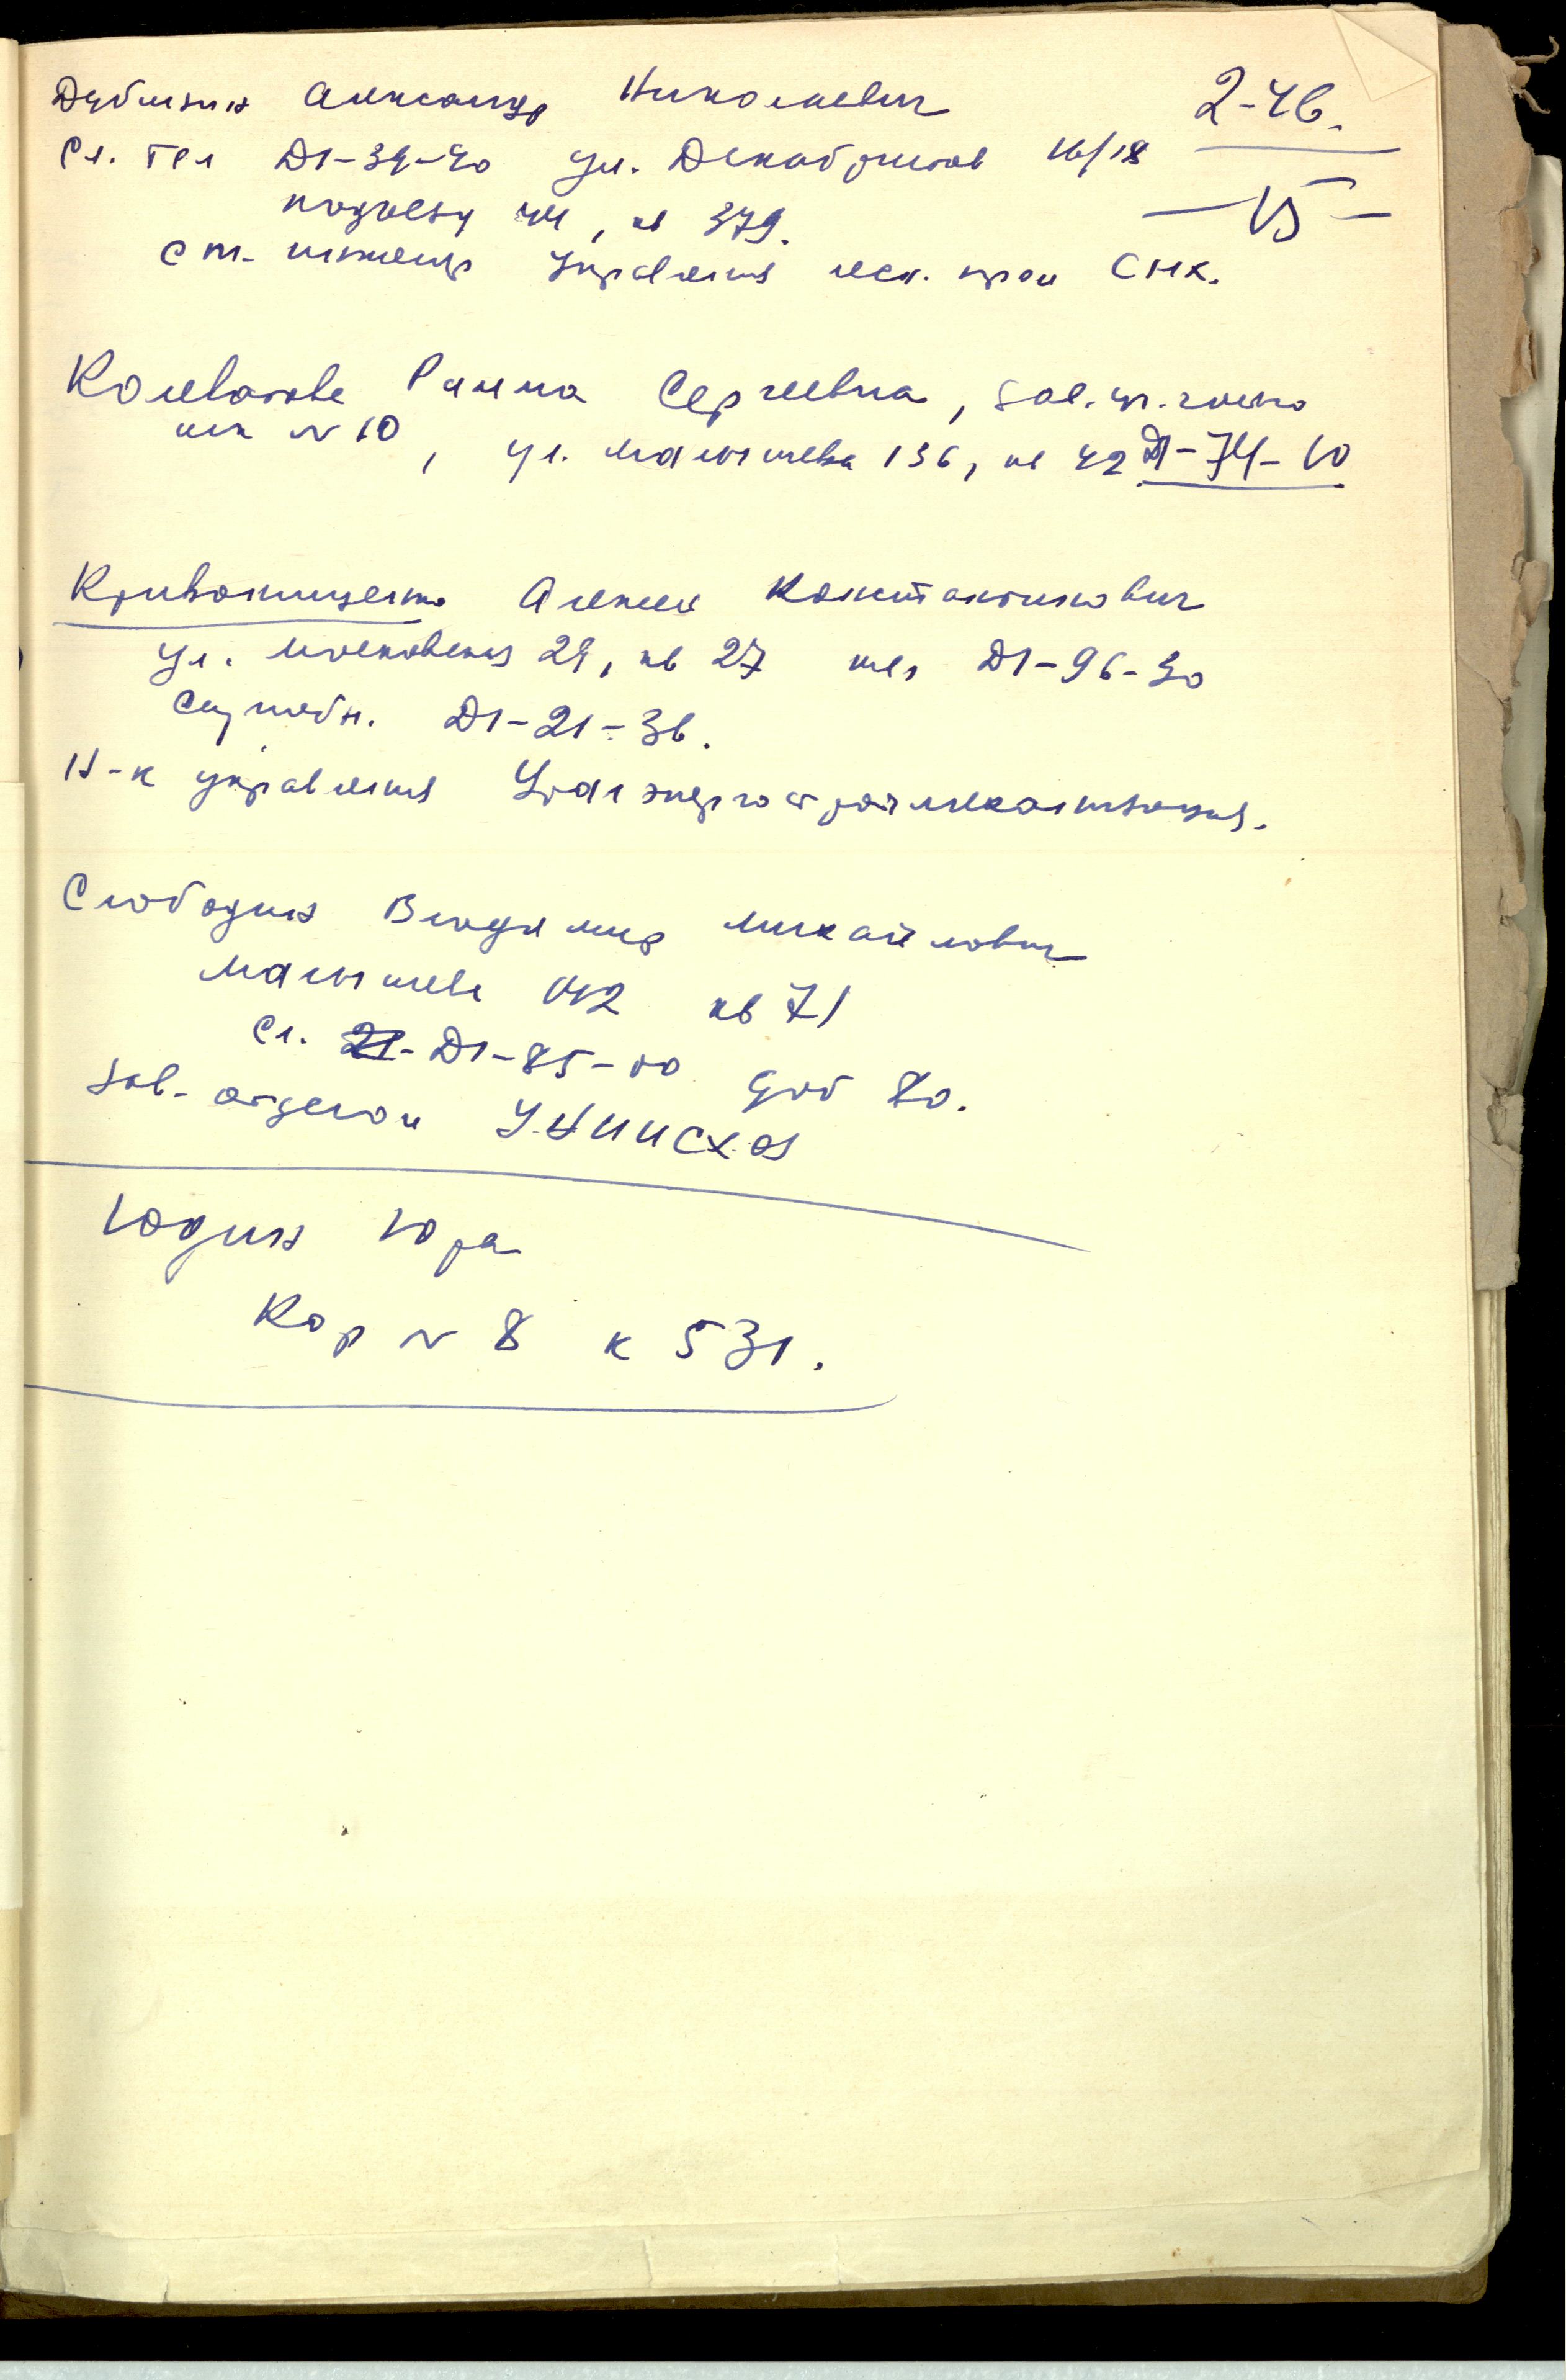 Дубинин Александр Николаевич
2-46.
Сл. тел Д1-34-40 ул. Декабристов 16/18
-15-
подъезд , кв 379.
Ст. инженер управления лесн. пром СНХ.
Колеватова Римма Сергеевна, зав. уч. частью
шк № 10, ул. Малышева 136, кв 42 Д1-74-10
Кривонищенко Алексей Константинович
ул. Московская 29, кв 27 тел Д1-96-30
Служебн. Д1-21-36.
Н-к управления Уралэнергостроймеханизация.
Слободин Владимир Михайлович
Малышева кв 71
Сл. Д1-85-00 доб 80.
Зав. отделом УНИИСХОЗ
Юдин Юра
Кор № 8 к 531.